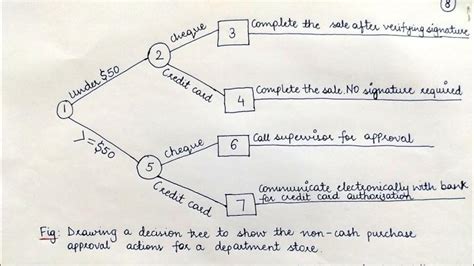 8
3 Complete the sale after verifying signature
cheque
2
under $50
Credit card
4 Complete the sale. NO signature required
1
>=$50
cheque
6 Call supervisor for approval
5
Credit card
7 Communicate electronically with bank
for credit card authorisation
Fig: Drawing a decision tree to show the non-cash purchase
approval actions for a department store.